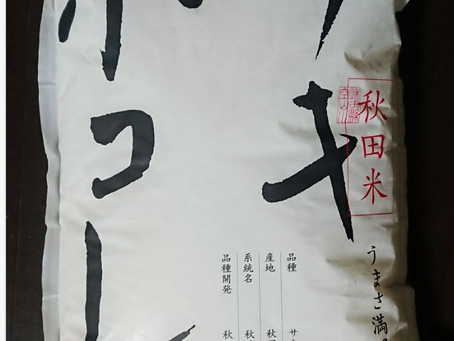 秋田米
うまさ満
キ
品種 サ
産地 秋田
系統名 秋
品種開発 秋
ホコレ